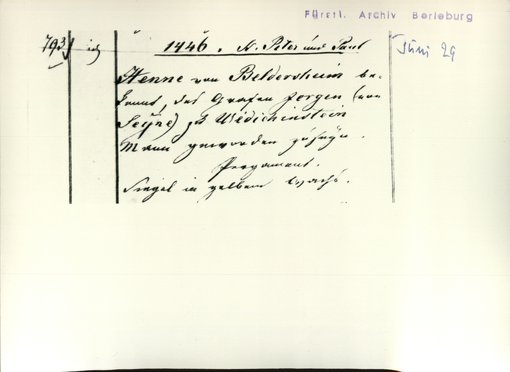 Fürstl. Archiv Berleburg
793
1446. St. Peter und Paul
Juni 29
Henne von Beldersheim be-
kennt, des Grafen Jorgen (von
Seyne) zu Widichinstein
Mann geworden zu seyn.
Pergament.
Siegel in gelbem Wachs.